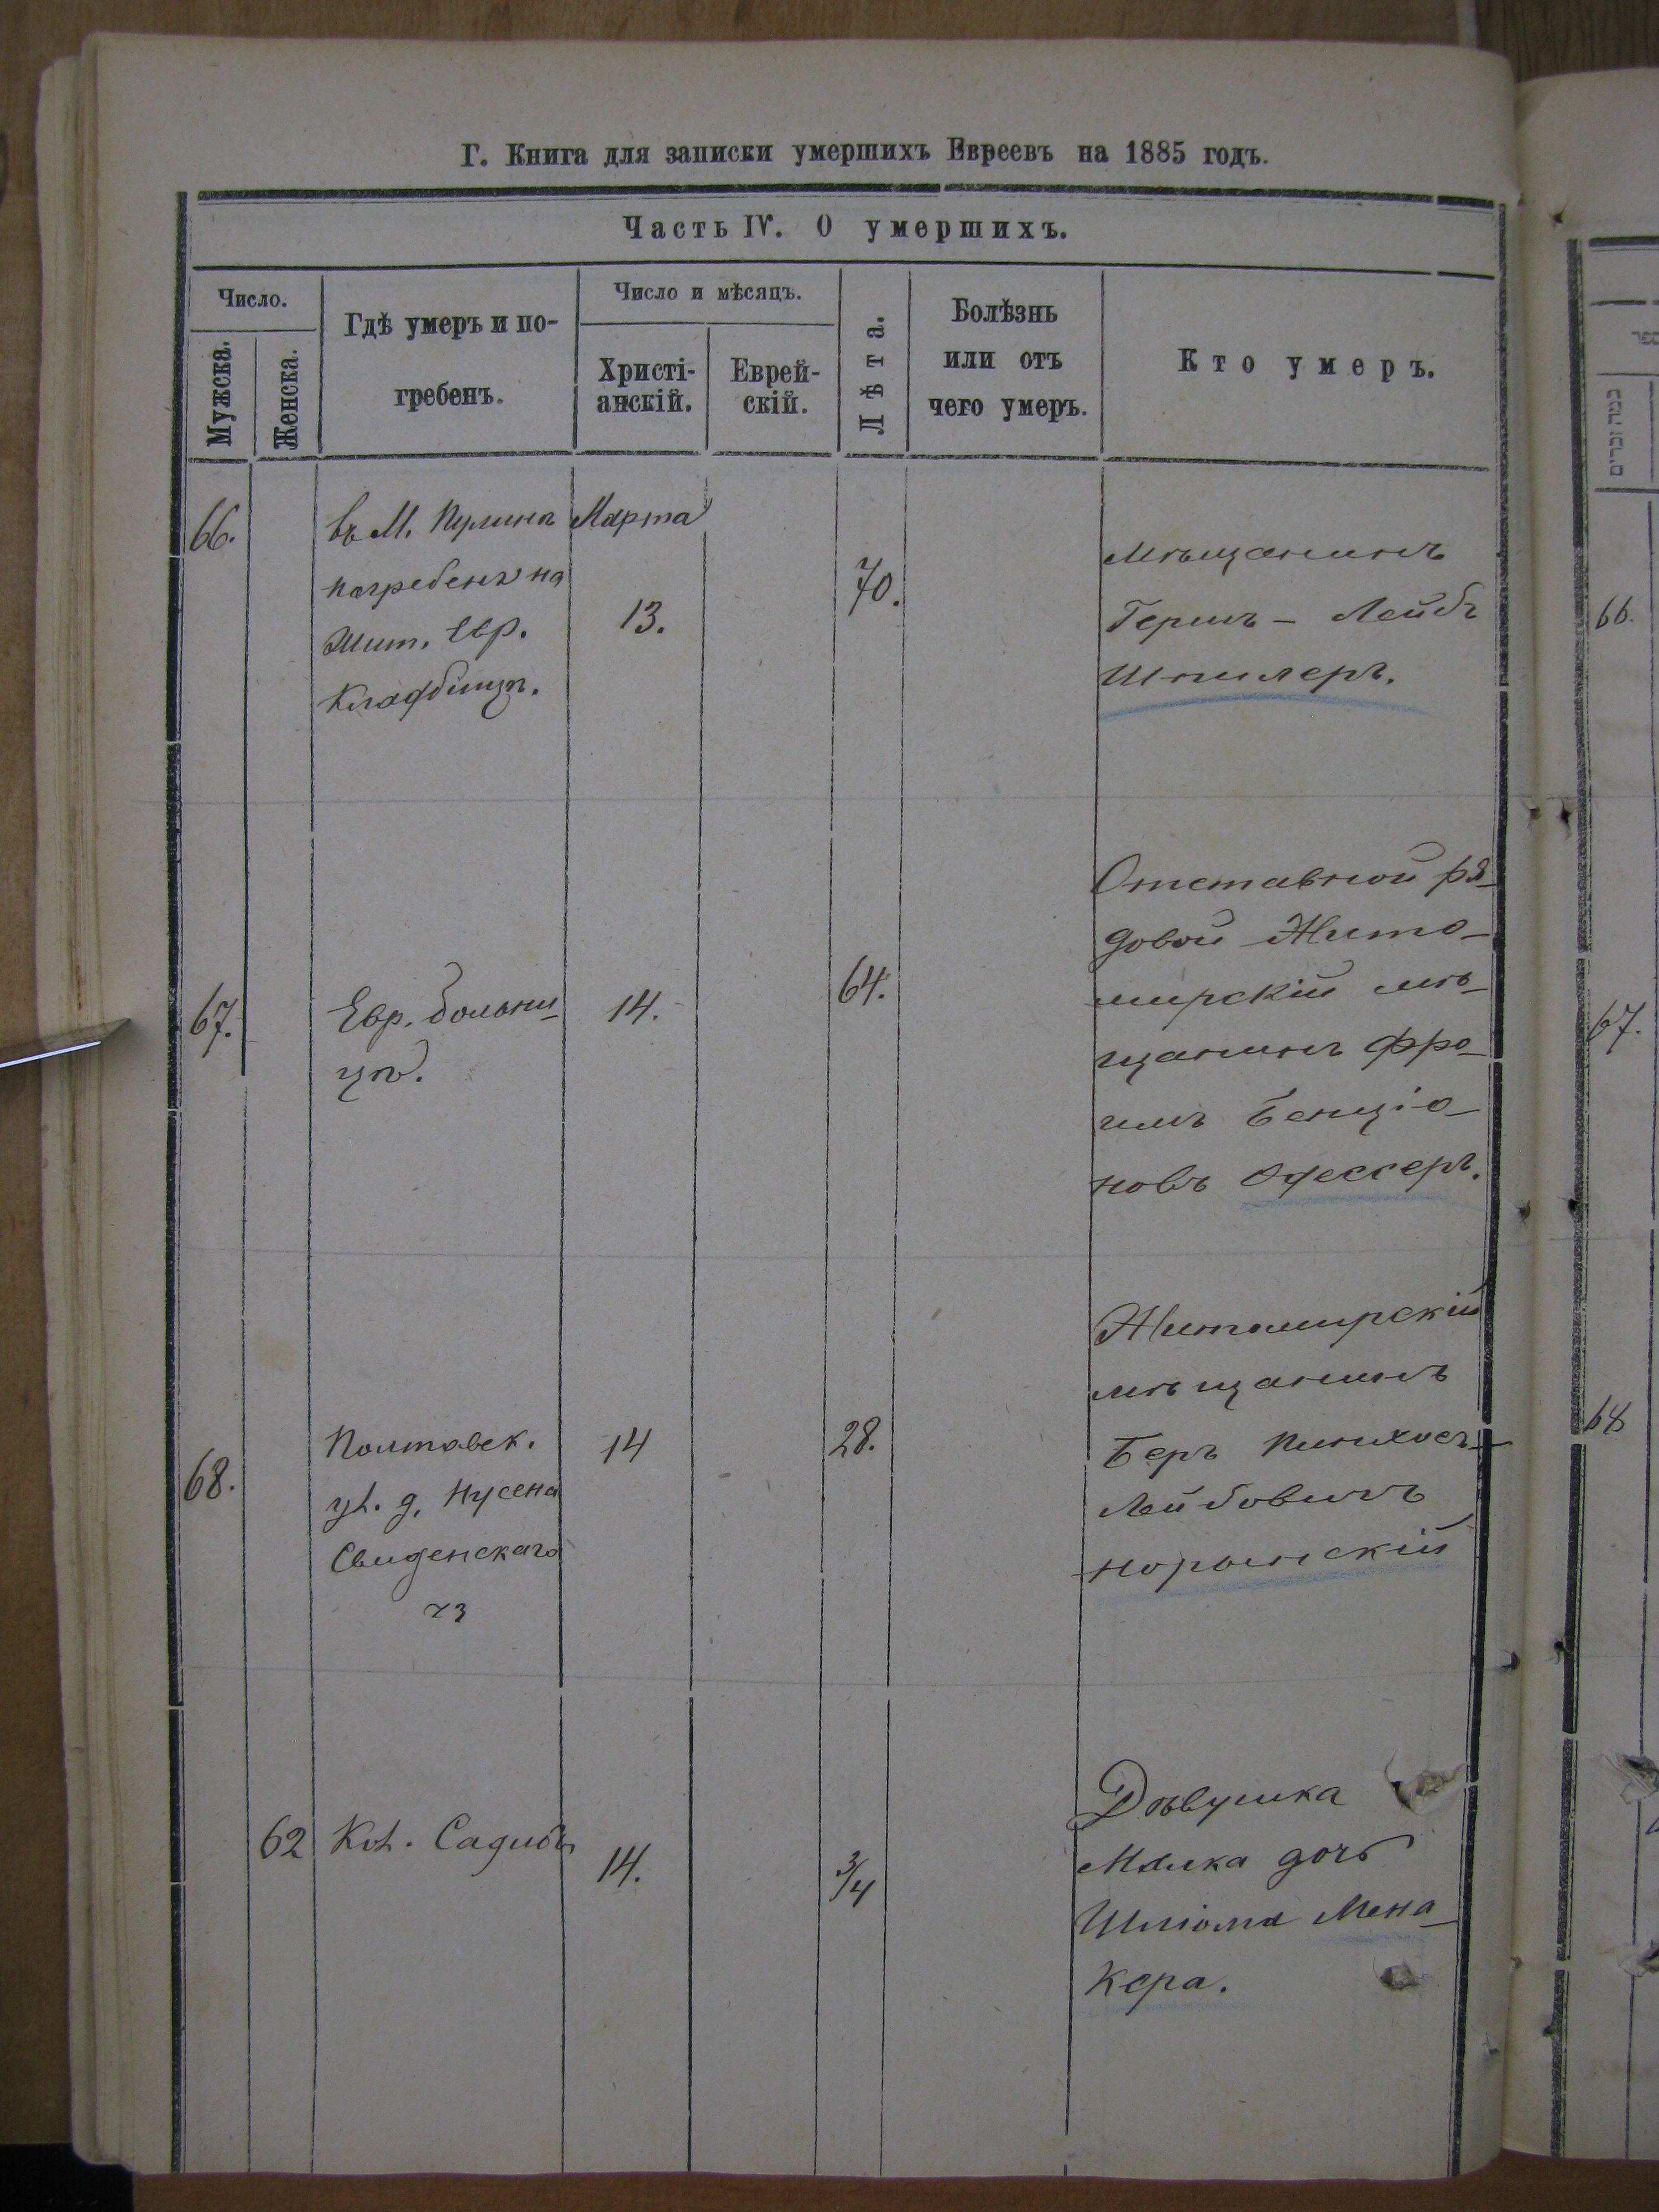 Г. Книга для записки умершихъ Евреевъ на 1885 годъ.
Часть IV. О умершихъ.
Число.
Мужска.
Женска.
Гдѣ умеръ и по-
гребенъ.
Число и мѣсяцъ.
Христі-
анскій.
Еврей-
скій.
Лѣта.
Болѣзнь
или отъ
чего умеръ.
Кто умеръ.
66.
въ М. Пулинѣ
погребенъ на
Жит. Евр.
Кладбищѣ.
Марта
13.
70.
Мѣщанинъ
Гершъ - Лейбъ
Шпилеръ.
67.
Евр. больни-
цѣ.
14.
64.
Отставной ря-
довой Жито-
мирскій мѣ-
щанинъ Фро-
имъ Бенціо-
новъ Одессеръ.
68.
Полтавск.
ул. д. Нусена
Свиденскаго
14
28.
Житомирскій
мѣщанинъ
Беръ Пинхосъ-
Лейбовичъ
Норынскій
62
14.
3/4
Дѣвушка
Малка дочь
Шлiома Мена-
кера.
66.
67.
68